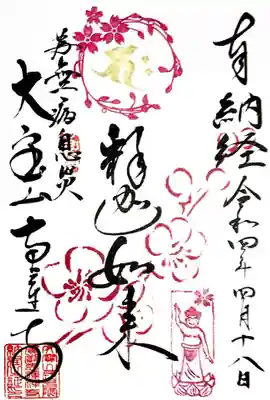 奉納経 令和四年四月十八日
釈迦如来
為無病息災
大宝山